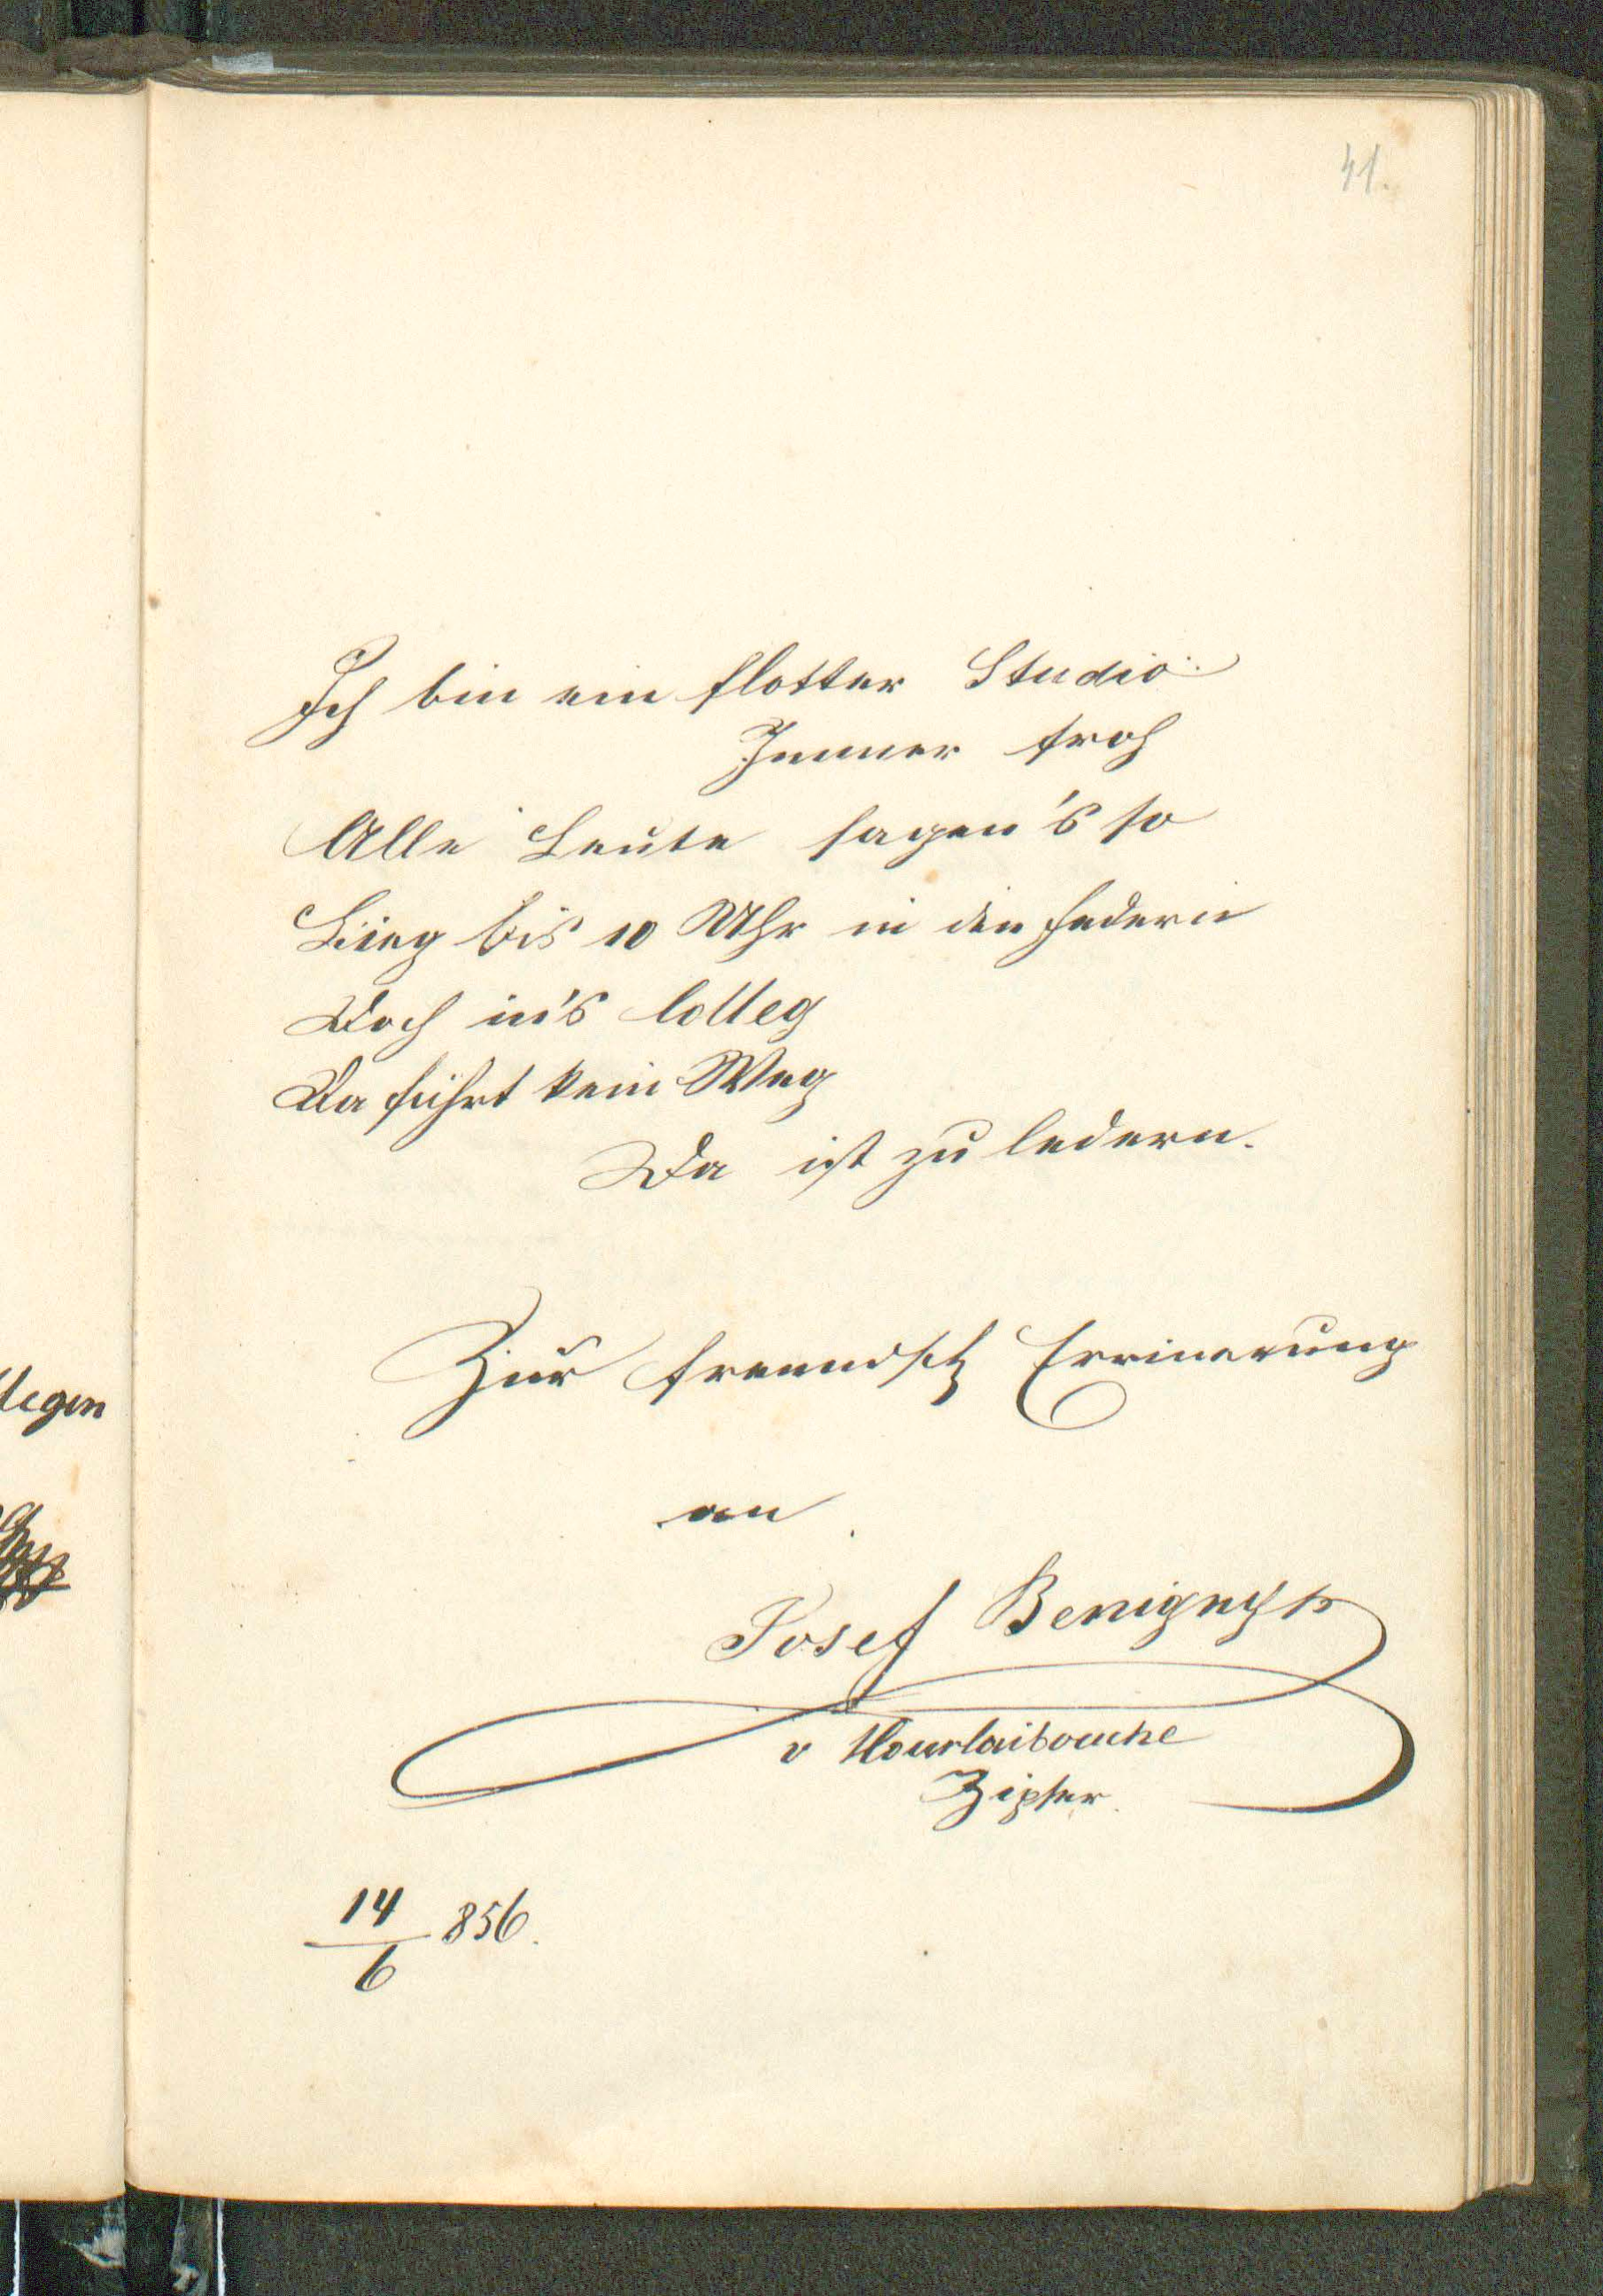 41.
Ich bin ein flotter Studio
Immer froh
Alle Leute sagen's so
Lieg bis 10 Uhr in den Federn
Doch in's Colleg
Da führt kein Weg
Da ist zu ledern.
Zur freundsch Errinerung
an
Josef Benigny
v
Zipser
14/6 856.
legen